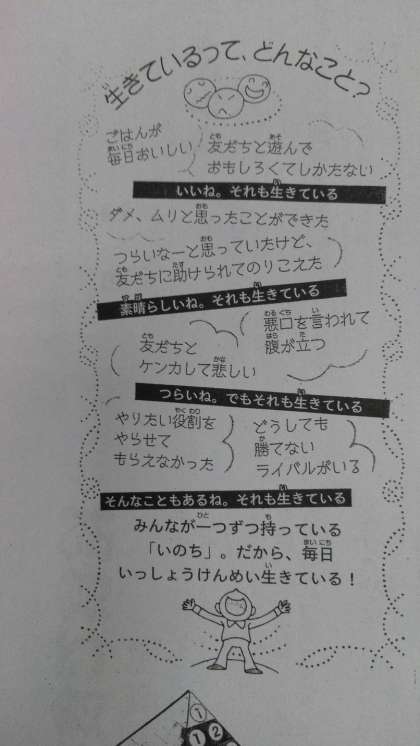 生きているって、どんなこと？
ごはんが
毎日おいしい
友だちと遊んで
おもしろくてしかたない
いいね。それも生きている
ダメ、ムリと思ったことができた
つらいなーと思っていたけど、
友だちに助けられてのりこえた
素晴らしいね。それも生きている
友だちと
ケンカして悲しい
悪口を言われて
腹が立つ
つらいね。でもそれも生きている
やりたい役割を
やらせて
もらえなかった
どうしても
勝てない
ライバルがいる
そんなこともあるね。それも生きている
みんなが一つずつ持っている
「いのち」。だから、毎日
いっしょうけんめい生きている！
①
❶❷